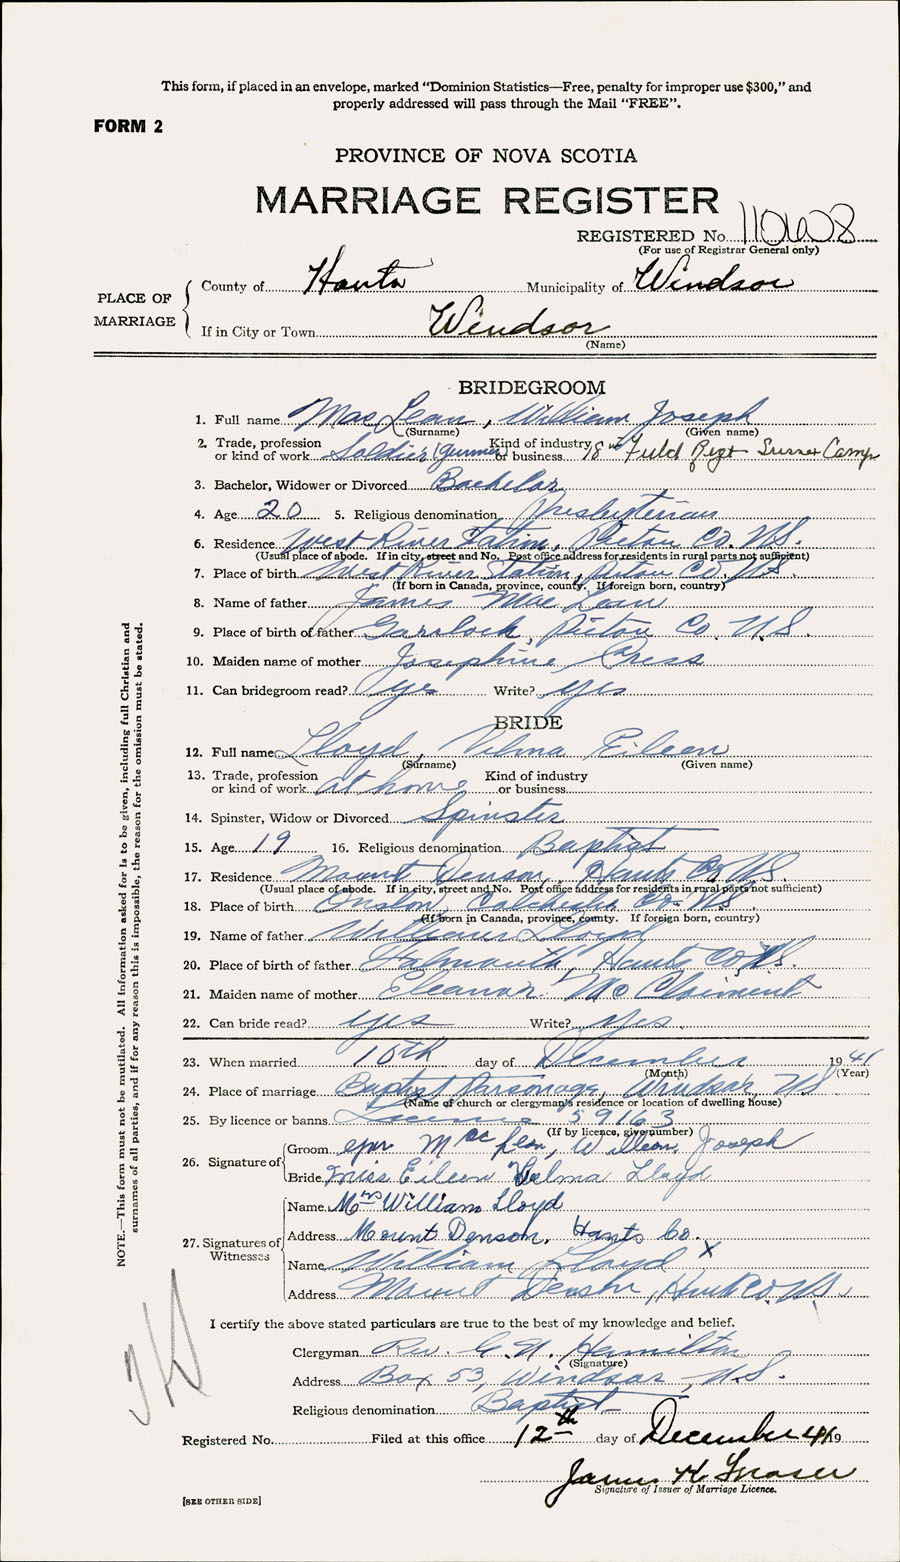 This form, if placed in an envelope, marked "Dominion Statistics—Free, penalty for improper use $300," and
properly addressed will pass through the Mail "FREE".
FORM 2
PROVINCE OF NOVA SCOTIA
MARRIAGE REGISTER
REGISTERED No. 110608
(For use of Registrar General only)
PLACE OF MARRIAGE
County of Hants Municipality of Windsor
If in City or Town Windsor
(Name)
BRIDEGROOM
1. Full name MacLean, William Joseph
(Surname) (Given name)
2. Trade, profession or kind of work Soldier (gunner) Kind of industry or business 18th Field Regt Sussex Camp
3. Bachelor, Widower or Divorced Bachelor
4. Age 20 5. Religious denomination Presbyterian
6. Residence West River Station, Pictou Co. N.S.
(Usual place of abode. If in city, street and No. Post office address for residents in rural parts not sufficient)
7. Place of birth West River Station, Pictou Co. N.S.
(If born in Canada, province, county. If foreign born, country)
8. Name of father James MacLean
9. Place of birth of father Garrloch, Pictou Co. N.S.
10. Maiden name of mother Josephine
11. Can bridegroom read? yes Write? yes
BRIDE
12. Full name Lloyd, Velma Eileen
(Surname) (Given name)
13. Trade, profession or kind of work at home Kind of industry or business
14. Spinster, Widow or Divorced Spinster
15. Age 19 16. Religious denomination Baptist
17. Residence Mount Denson, Hants Co. N.S.
(Usual place of abode. If in city, street and No. Post office address for residents in rural parts not sufficient)
18. Place of birth Onslow, Colchester Co. N.S.
(If born in Canada, province, county. If foreign born, country)
19. Name of father William Lloyd
20. Place of birth of father Falmouth, Hants Co. N.S.
21. Maiden name of mother Eleanor
22. Can bride read? yes Write? yes.
23. When married 10th day of December 1941
(Month) (Year)
24. Place of marriage Baptist Parsonage, Windsor, N.S.
(Name of church or clergyman's residence or location of dwelling house)
25. By licence or banns License 59163
(If by licence, give number)
26. Signature of Groom gnr MacLean, William, Joseph
Bride Miss Eileen Velma Lloyd
27. Signatures of Witnesses
Name Mrs William Lloyd
Address Mount Denson, Hants Co.
Name William Lloyd X
Address Mount Denson, Hants Co. N.S.
I certify the above stated particulars are true to the best of my knowledge and belief.
Clergyman Rev. G. N. Hamilton
(Signature)
Address Box 53, Windsor, N.S.
Religious denomination Baptist
Registered No. Filed at this office 12th day of December 41 19
James K Fraser
Signature of Issuer of Marriage Licence.
[SEE OTHER SIDE]
NOTE.—This form must not be mutilated. All information asked for is to be given, including full Christian and
surnames of all parties, and if for any reason this is impossible, the reason for the omission must be stated.